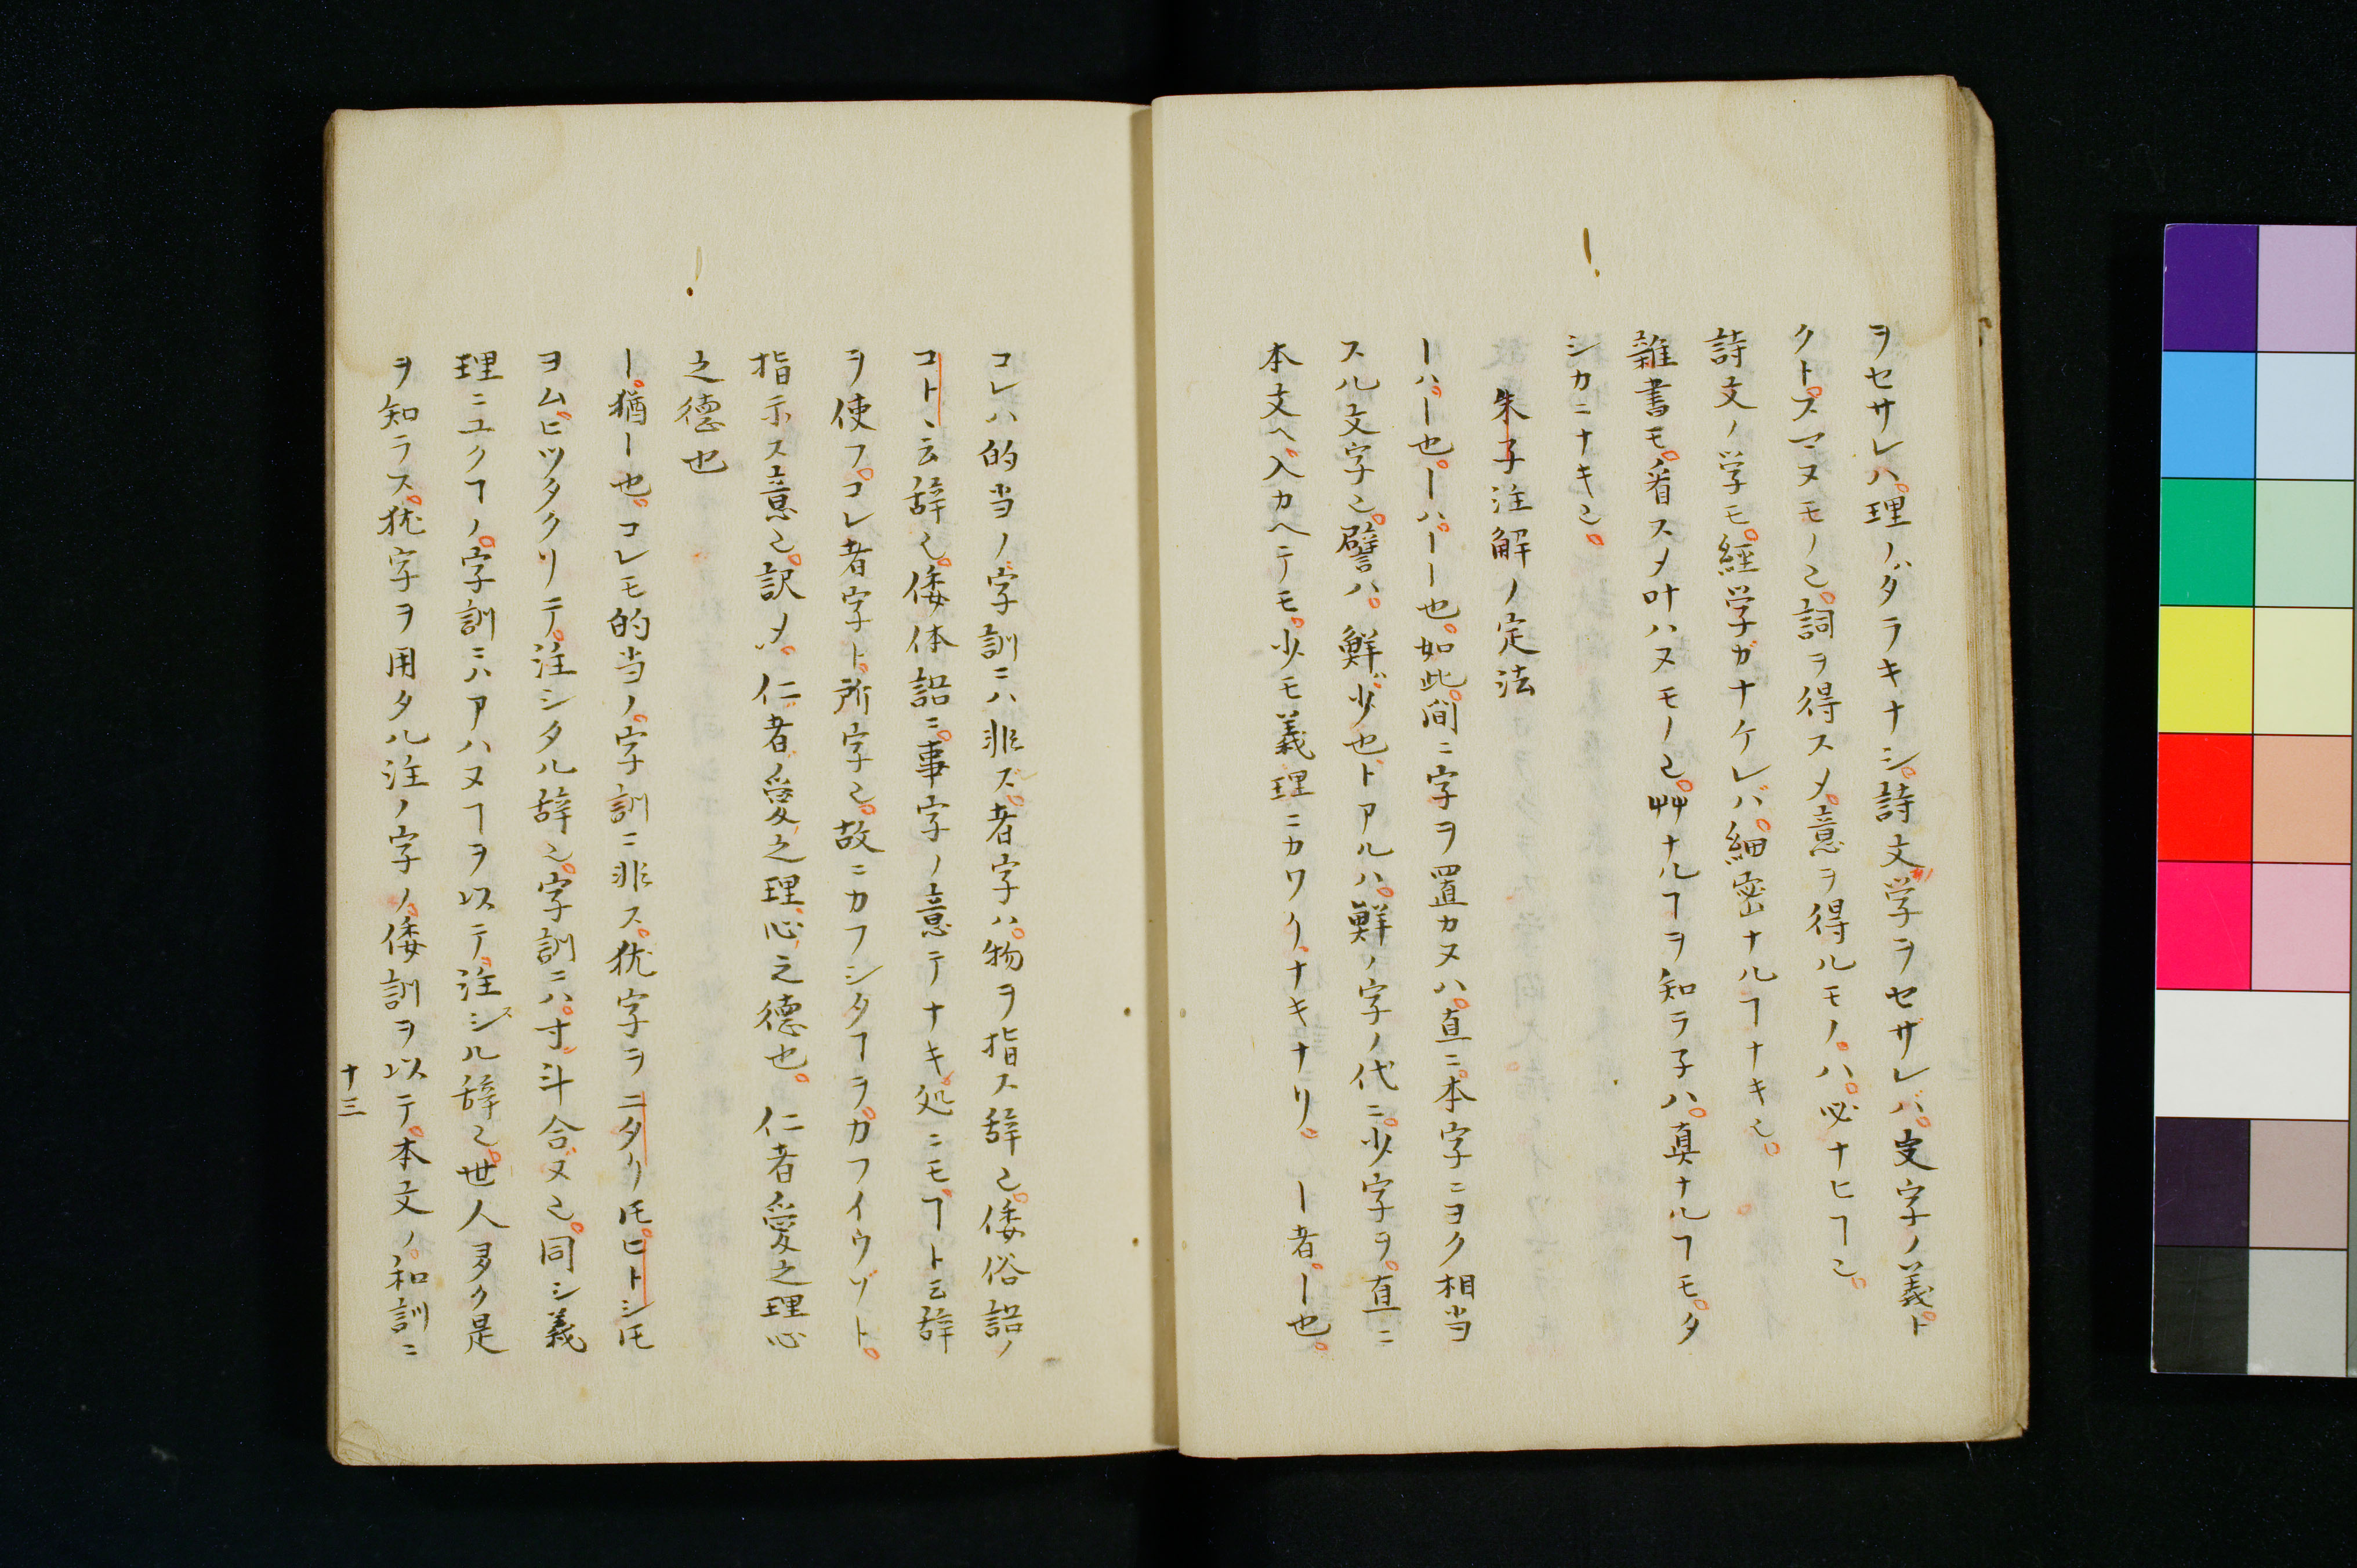 ヲセサレハ理ノハタラキナシ詩文学ヲセザレバ文字ノ義ト
クトスマヌモノ也詞ヲ得スメ意ヲ得ルモノハ必ナヒヿ也
詩文ノ学モ経学ガナケレバ細密ナルヿナキ也
雑書モ看スメ叶ハヌモノ也艸ナルヿヲ知ラ子ハ真ナルヿモタ
シカニナキ也
朱子注解ノ定法
ーハー也ーハー也如此間ニ字ヲ置カヌハ直ニ本字ニヨク相当
スル文字也譬ハ鮮少也トアルハ鮮ノ字ノ代ニ少字ヲ直ニ
本文ヘ入カヘテモ少モ義理ニカワリナキナリ ー者ー也
コレハ的当ノ字訓ニハ非ズ者字ハ物ヲ指ス辞也倭俗語ノ
コトヽ云辞也倭体語ニ事字ノ意テナキ処ニモヿト云辞
ヲ使フコレ者字ト所字也故ニカフシタヿヲガフイウゾト
指示ス意也訳メハ仁者ノ愛之理心之徳也 仁者愛之理心
之徳也
ー猶ー也コレモ的当ノ字訓ニ非ス猶字ヲニタリ𪜈ヒトシ𪜈
ヨムヒツタクリテ注シタル辞也字訓ニハ寸斗合ヌ也同シ義
理ニユクヿノ字訓ニハアハヌヿヲ以テ注スル辞也世人多ク是
ヲ知ラス犹字ヲ用タル注ノ字ノ倭訓ヲ以テ本文ノ和訓ニ
十三